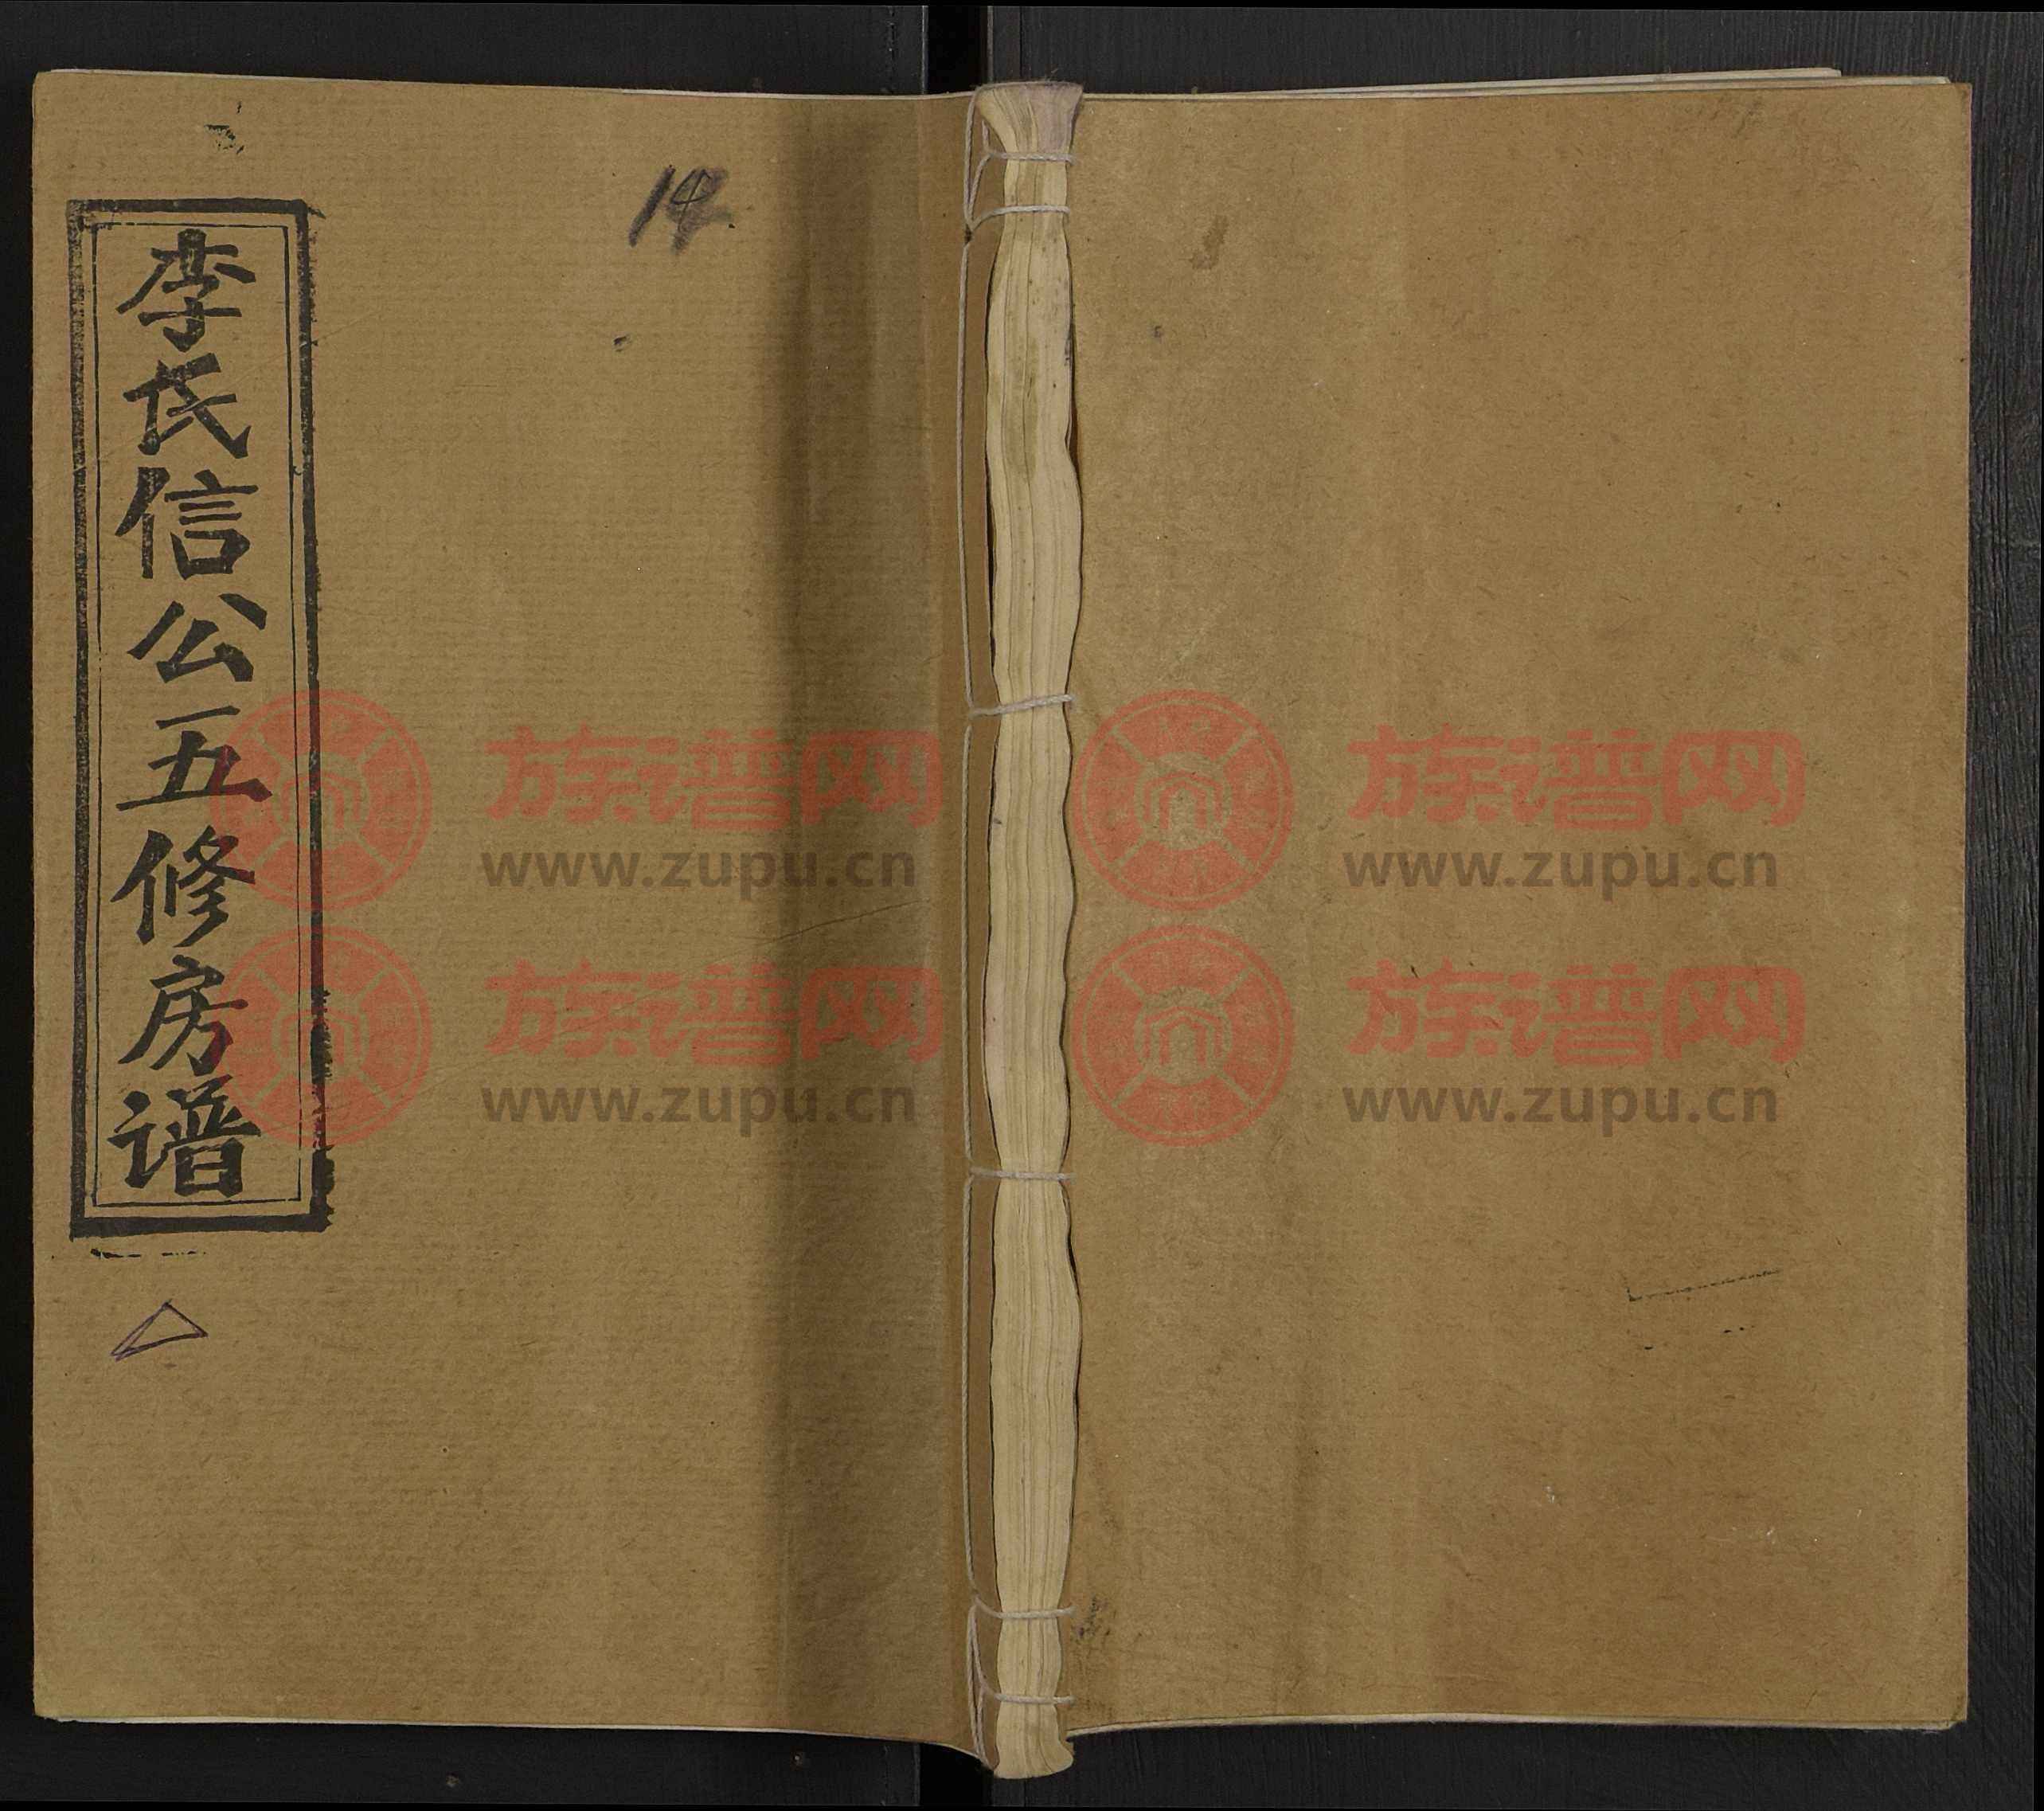 李氏信公五修房谱
14
族谱网
www.zupu.cn
族谱网
www.zupu.cn
族谱网
www.zupu.cn
族谱网
www.zupu.cn